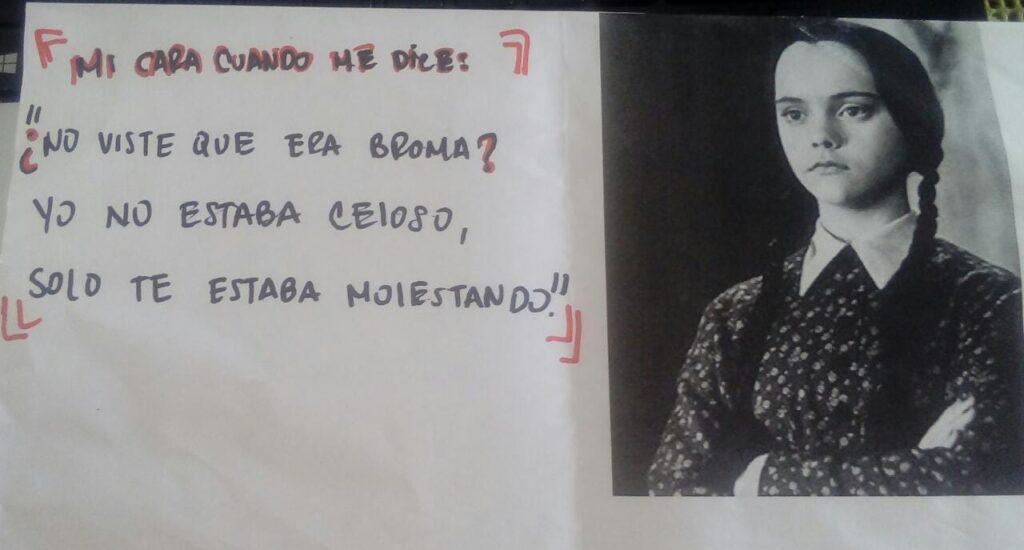 MI CARA CUANDO ME DICE:
"¿NO VISTE QUE ERA BROMA?
YO NO ESTABA CELOSO,
SOLO TE ESTABA MOLESTANDO."